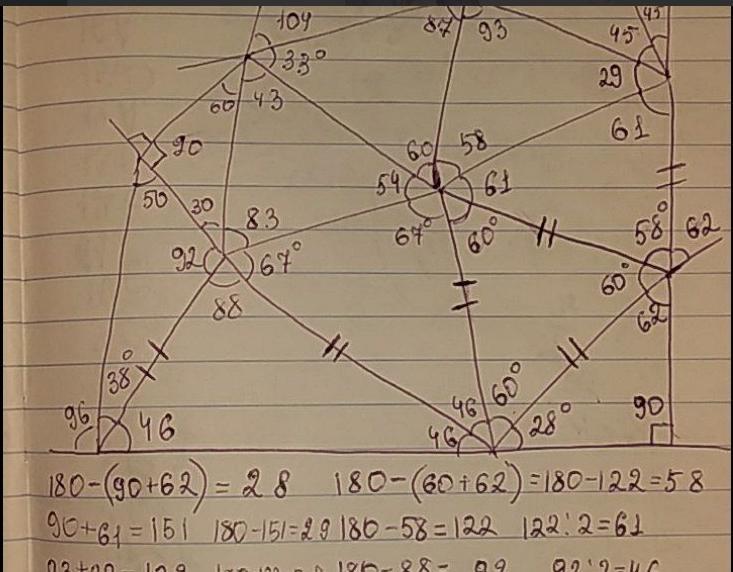 104
87 93
45 45
33°
29
60 43
61
90
60 58
50
54 61
30 83
67° 60°
58° 62
92 67°
60°
88
62
38°
96 46
46 60°
46 28°
90
180-(90+62)=28 180-(60+62)=180-122=58
90+61=151 180-151=29 180-58=122 122:2=61
180-88= 92:2=46